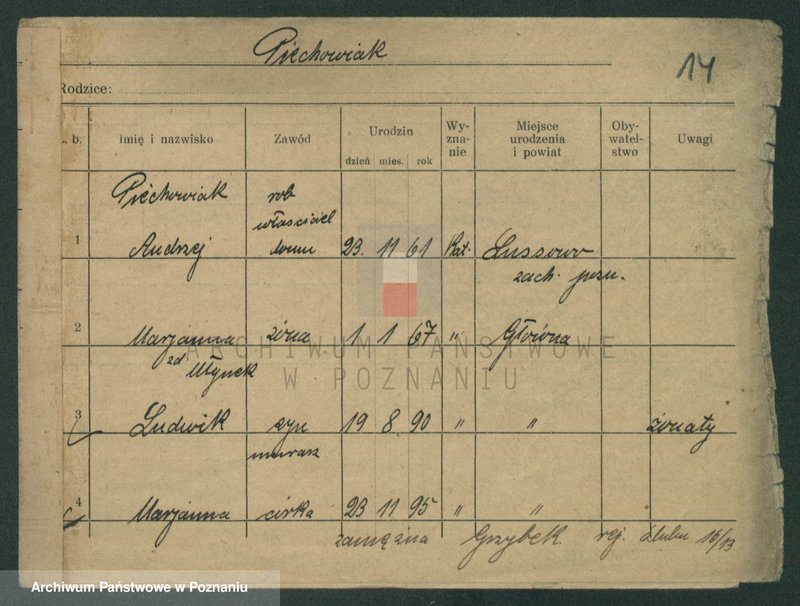 Piechowiak
14
Rodzice:
. b. Imię i nazwisko Zawód Urodzin dzień mies. rok Wy-zna-nie Miejsce urodzenia i powiat Oby-watel-stwo Uwagi
Piechowiak rob
właściciel
1 Andrzej domu 23. 11 61 Kat. Lussowo
zach. pozn.
2 Marjanna żona 1 1 67 " Główna
zd. Młynek
3 Ludwik syn 19 8. 90 " " żonaty
murarz
4 Marjanna córka 23 11 95 " "
zamężna Grzybek rej. ślubu 16/13
ARCHIWUM PAŃSTWOWE
W POZNANIU
Archiwum Państwowe w Poznaniu